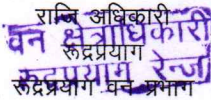 राजि अधिकारी
वन क्षेत्राधिकारी
रूद्रप्रयाग
रूद्रप्रयाग रेन्ज
रूद्रप्रयाग वन प्रभाग